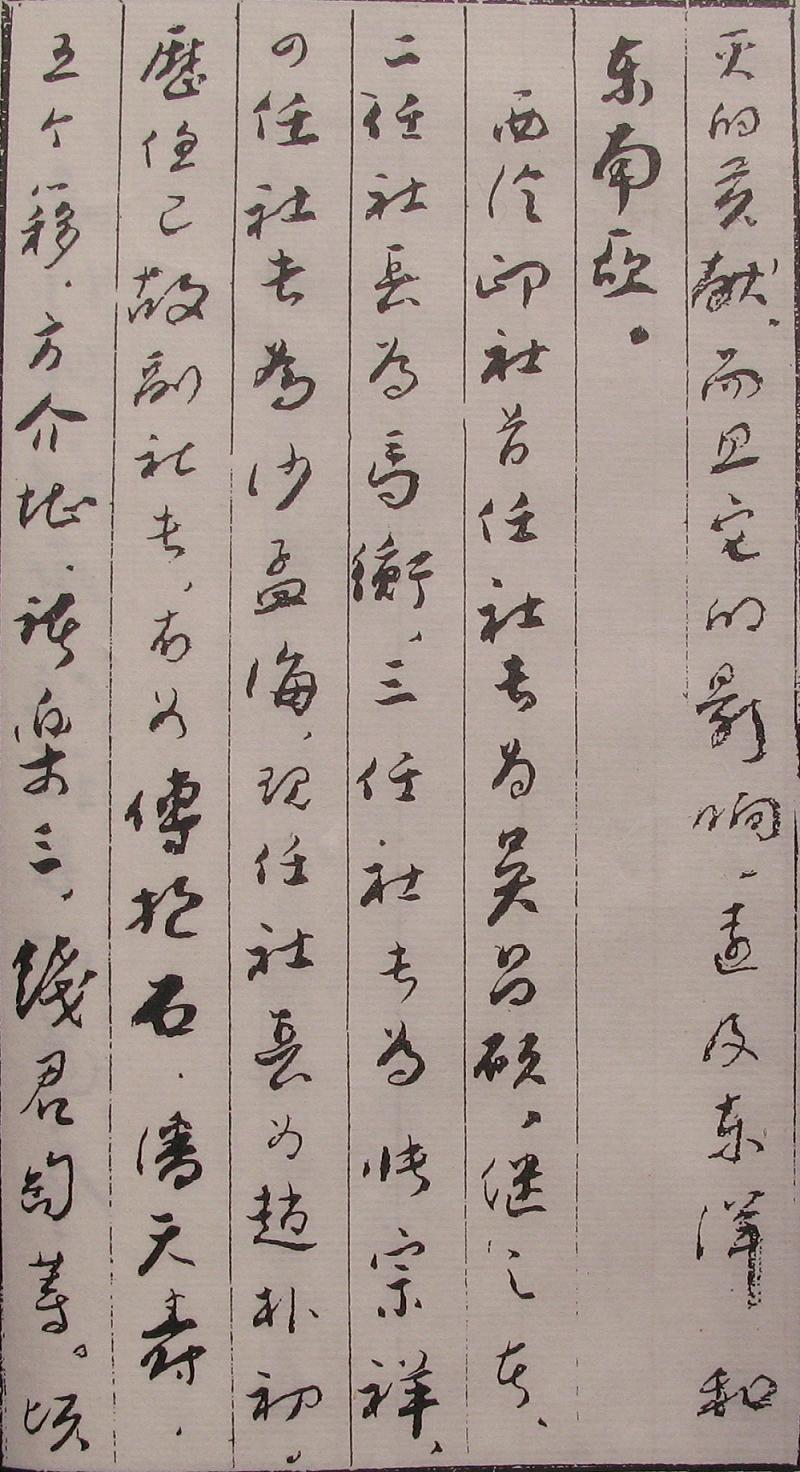 灭的贡献，而且它的影响，远及东洋和
东南亚。
西泠印社首任社长为吴昌硕，继之者、
二任社長为馬衡，三任社长为张宗祥、
四任社长為沙孟海，现任社長为趙朴初。
歷任已故副社长，有如傅抱石、潘天壽、
王个簃、方介堪、諸樂三、錢君匋等。顷